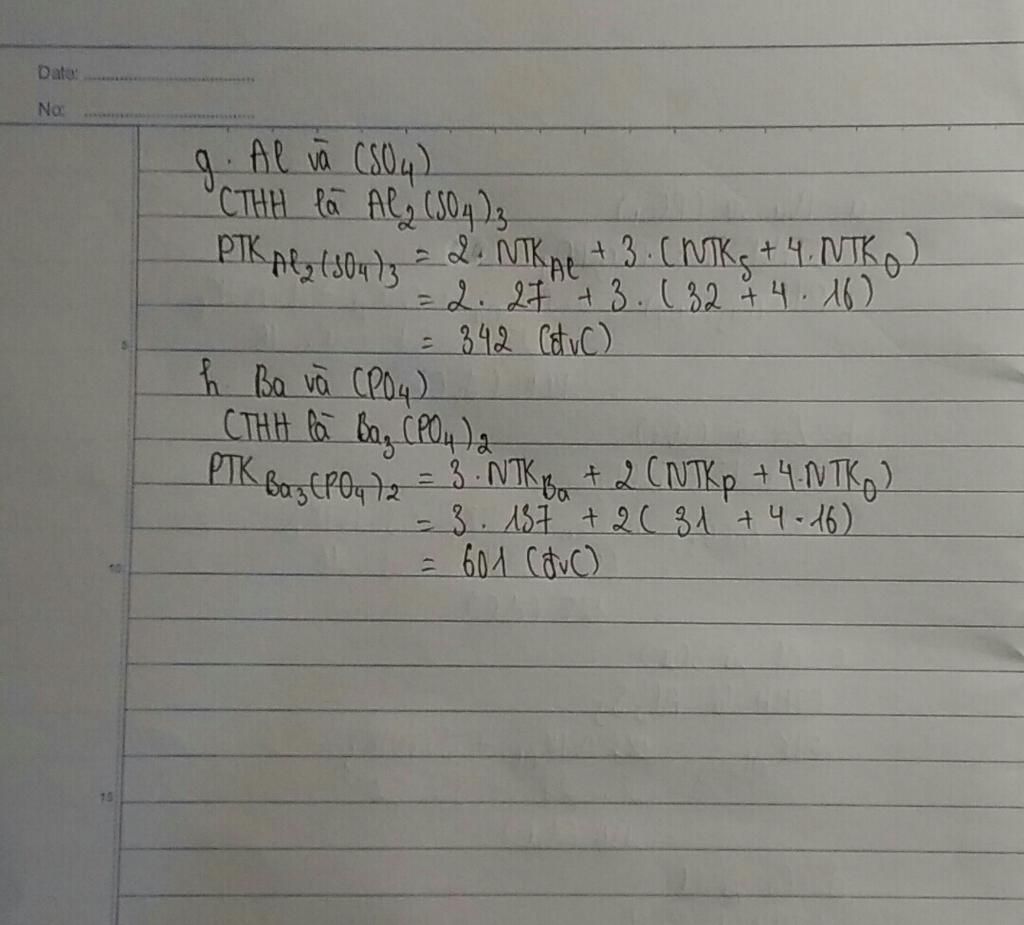 Date:
No:
g. Al và (SO4)
CTHH là Al2(SO4)3
PTK Al2(SO4)3 = 2. NTK Al + 3.(NTK S + 4.NTK O)
= 2. 27 + 3. (32 + 4. 16)
5
= 342 (đvC)
h Ba và (PO4)
CTHH là Ba3(PO4)2
PTK Ba3(PO4)2 = 3.NTK Ba + 2(NTK P + 4.NTK O)
= 3. 137 + 2(31 + 4.16)
10
= 601 (đvC)
15